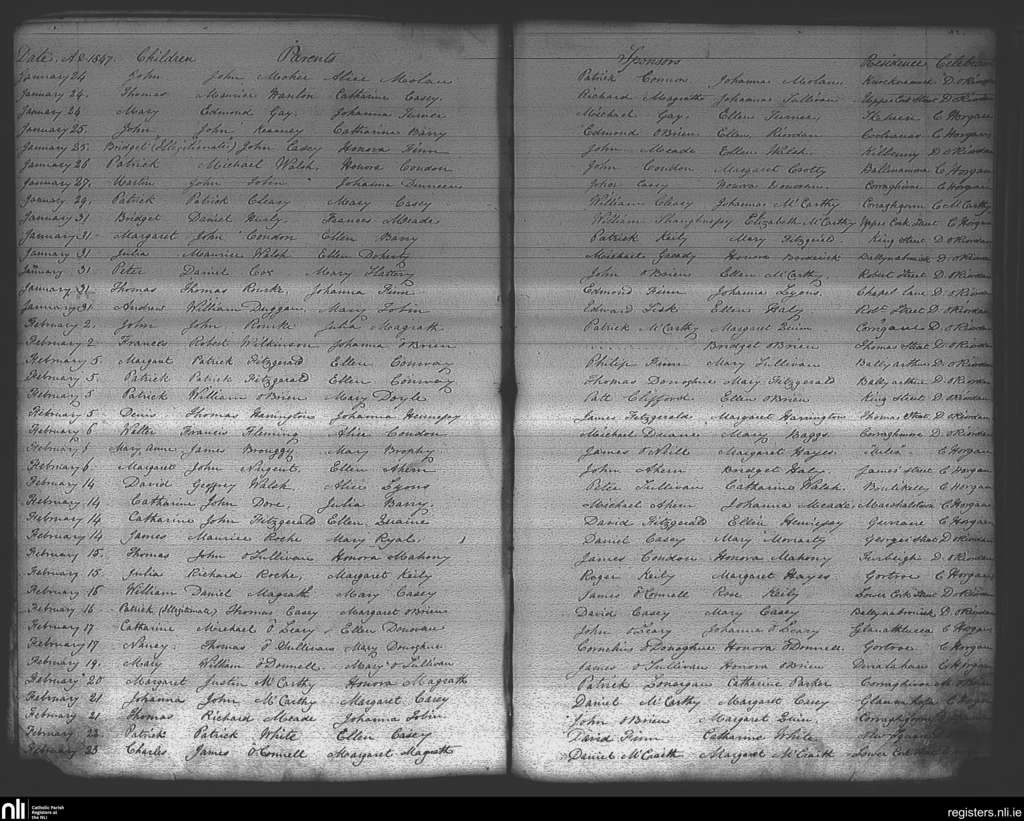 Date. A.D. 1847. Children Parents Sponsors Residence Celebrant
January 24 John John Meehee Alice Molan Patrick Connors Johanna Molan D. O'Riordan
January 24. Thomas Maurice Hanlon Catharine Casey. Richard Magrath Johanna Sullivan Upper Cork Street D. O'Riordan
January 24 Mary Edmond Gay. Johanna Turner Michael Gay. Ellen Turner. C Horgan
January 25. John John Keaney Catharine Barry Edmond O'Brien Ellen Riordan Coolnanas C Horgan
January 25. Bridget (Illegitimate) John Casey Honora Finn John Meade Ellen Welsh Kilkenny D. O'Riordan
January 26 Patrick Michael Walsh. Honora Condon John Condon Margaret Crotty C. Horgan
January 27. Martin John Tobin Johanna John Casey Honora Donovan. Corraghine C. Horgan
January 29. Patrick Patrick Cleary Mary Casey William Cleary Johanna McCarthy C. McCarthy
January 31 Bridget Daniel Healy. Frances Meade William Shaughnesy Elizabeth McCarthy Upper Cork Street C. Horgan
January 31 Margaret John Condon Ellen Barry Patrick Keily Mary Fitzgerald King Street D. O'Riordan
January 31 Julia Maurice Walsh Ellen Doherty Michael Honora Broderick Ballynabrick D. O'Riordan
January 31 Peter Daniel Cox Mary Slattery John O'Brien Ellen McCarthy. Robert Street D. O'Riordan
January 31. Thomas Thomas Rourke. Johanna Finn. Edmond Finn Johanna Lyons. Chapel Lane D. O'Riordan
January 31 Andrew William Duggan. Mary Tobin Edward Fisk Ellen Haly Robt Street D. O'Riordan
February 2. John John Rourke Julia Magrath Patrick McCarthy Margaret Quinn D. O'Riordan
February 2 Frances Robert Wilkinson Johanna O'Brien Bridget O'Brien Thomas Street D. O'Riordan
February 5. Margaret Patrick Fitzgerald Ellen Conway Philip Finn Mary Sullivan Ballyarthur D. O'Riordan
February 5. Patrick Patrick Fitzgerald Ellen Conway Thomas Donoghue Mary Fitzgerald Ballyarthur D. O'Riordan
February 5 Patrick William O'Brien Mary Doyle Patt Clifford Ellen O'Brien King Street D. O'Riordan
February 5 Denis Thomas Harrington Johanna Hennesy James Fitzgerald Margaret Harrington Thomas Street D. O'Riordan
February 6 Walter Francis Fleming Alice Condon Michael Duane Mary Baggs. Corraghmore D. O'Riordan
February 5 Mary Anne James Mary Brophy James O'Neill Margaret Hayes C. Horgan
February 6. Margaret John Nugent. Ellen Ahern John Ahern Bridget Haly James Street C. Horgan
February 14 David Geffrey Walsh Alice Lyons Peter Sullivan Catharine Walsh. C Horgan
February 14. Catharine John Dove, Julia Barry. Michael Ahern Johanna Meade. Marshalstown C Horgan
February 14 Catharine John Fitzgerald Ellen Quaine David Fitzgerald Ellen Hennesy Gurrane C. Horgan
February 14 James Maurice Roche Mary Ryal. Daniel Casey Mary Moriarty Georges Street D. O'Riordan
February 15. Thomas John O'Sullivan Honora Mahony James Condon Honora Mahony Furbeigh D. O'Riordan
February 15. Julia Richard Roche, Margaret Keily Roger Keily Margaret Hayes Gortroe C Horgan
February 16 William Daniel Magrath Mary Casey James O'Connell Rose Keily Lower Cork Street D. O'Riordan
February 16 Patrick (Illegitimate) Thomas Casey Margaret O'Brien David Casey Mary Casey Ballynabrick D. O'Riordan
February 17 Catharine Michael O'Leary Ellen Donovan John O'Leary Johanna O'Leary Glenatlucca C Horgan
February 17 Nancy Thomas O'Sullivan Mary Donoghue Cornelius O'Donoghue Honora O'Donnell. Gortroe C Horgan
February 19. Mary William O'Donnell. Mary O'Sullivan James O'Sullivan Honora O'Brien C. Horgan
February 20 Margaret Justin McCarthy Honora Magrath Patrick Lonargan Catharine Parker Corraghnon
February 21 Johanna John McCarthy Margaret Casey Daniel McCarthy Margaret Casey C. Horgan
February 21 Thomas Richard Meade Johanna Tobin John O'Brien Margaret Quin
February 22. Patrick Patrick White Ellen Casey David Finn Catharine White
February 23 Charles James O'Connell Margaret Magrath Daniel McCraith Margaret McCraith Lower Cork Street
nli Catholic Parish
Registers at
the NLI
registers.nli.ie